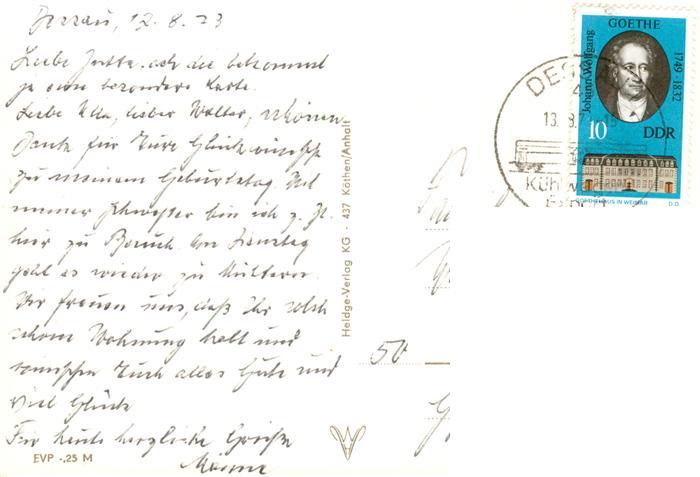 Dessau, 12.8.73
Liebe Jutta, ach die bekommst
ja eine besondere Karte.
Liebe Ulla, lieber Walter, schönen
Dank für Eure Glückwünsche
zu meinem Geburtstag. Mit
meiner Schwester bin ich z. Zt.
hier zu Besuch. Am Dienstag
geht es wieder zu Muttern.
Wir freuen uns, daß Ihr solch
schöne Wohnung habt und
wünschen Euch alles Gute und
viel Glück
Für heute herzliche Grüße
EVP -,25 M
Heldge-Verlag KG · 437 Köthen/Anhalt
50
DES
13.8.7
Kühlwa
Johann Wolfgang
GOETHE
1749-1832
10
DDR
GOETHEHAUS IN WEIMAR
D.D.